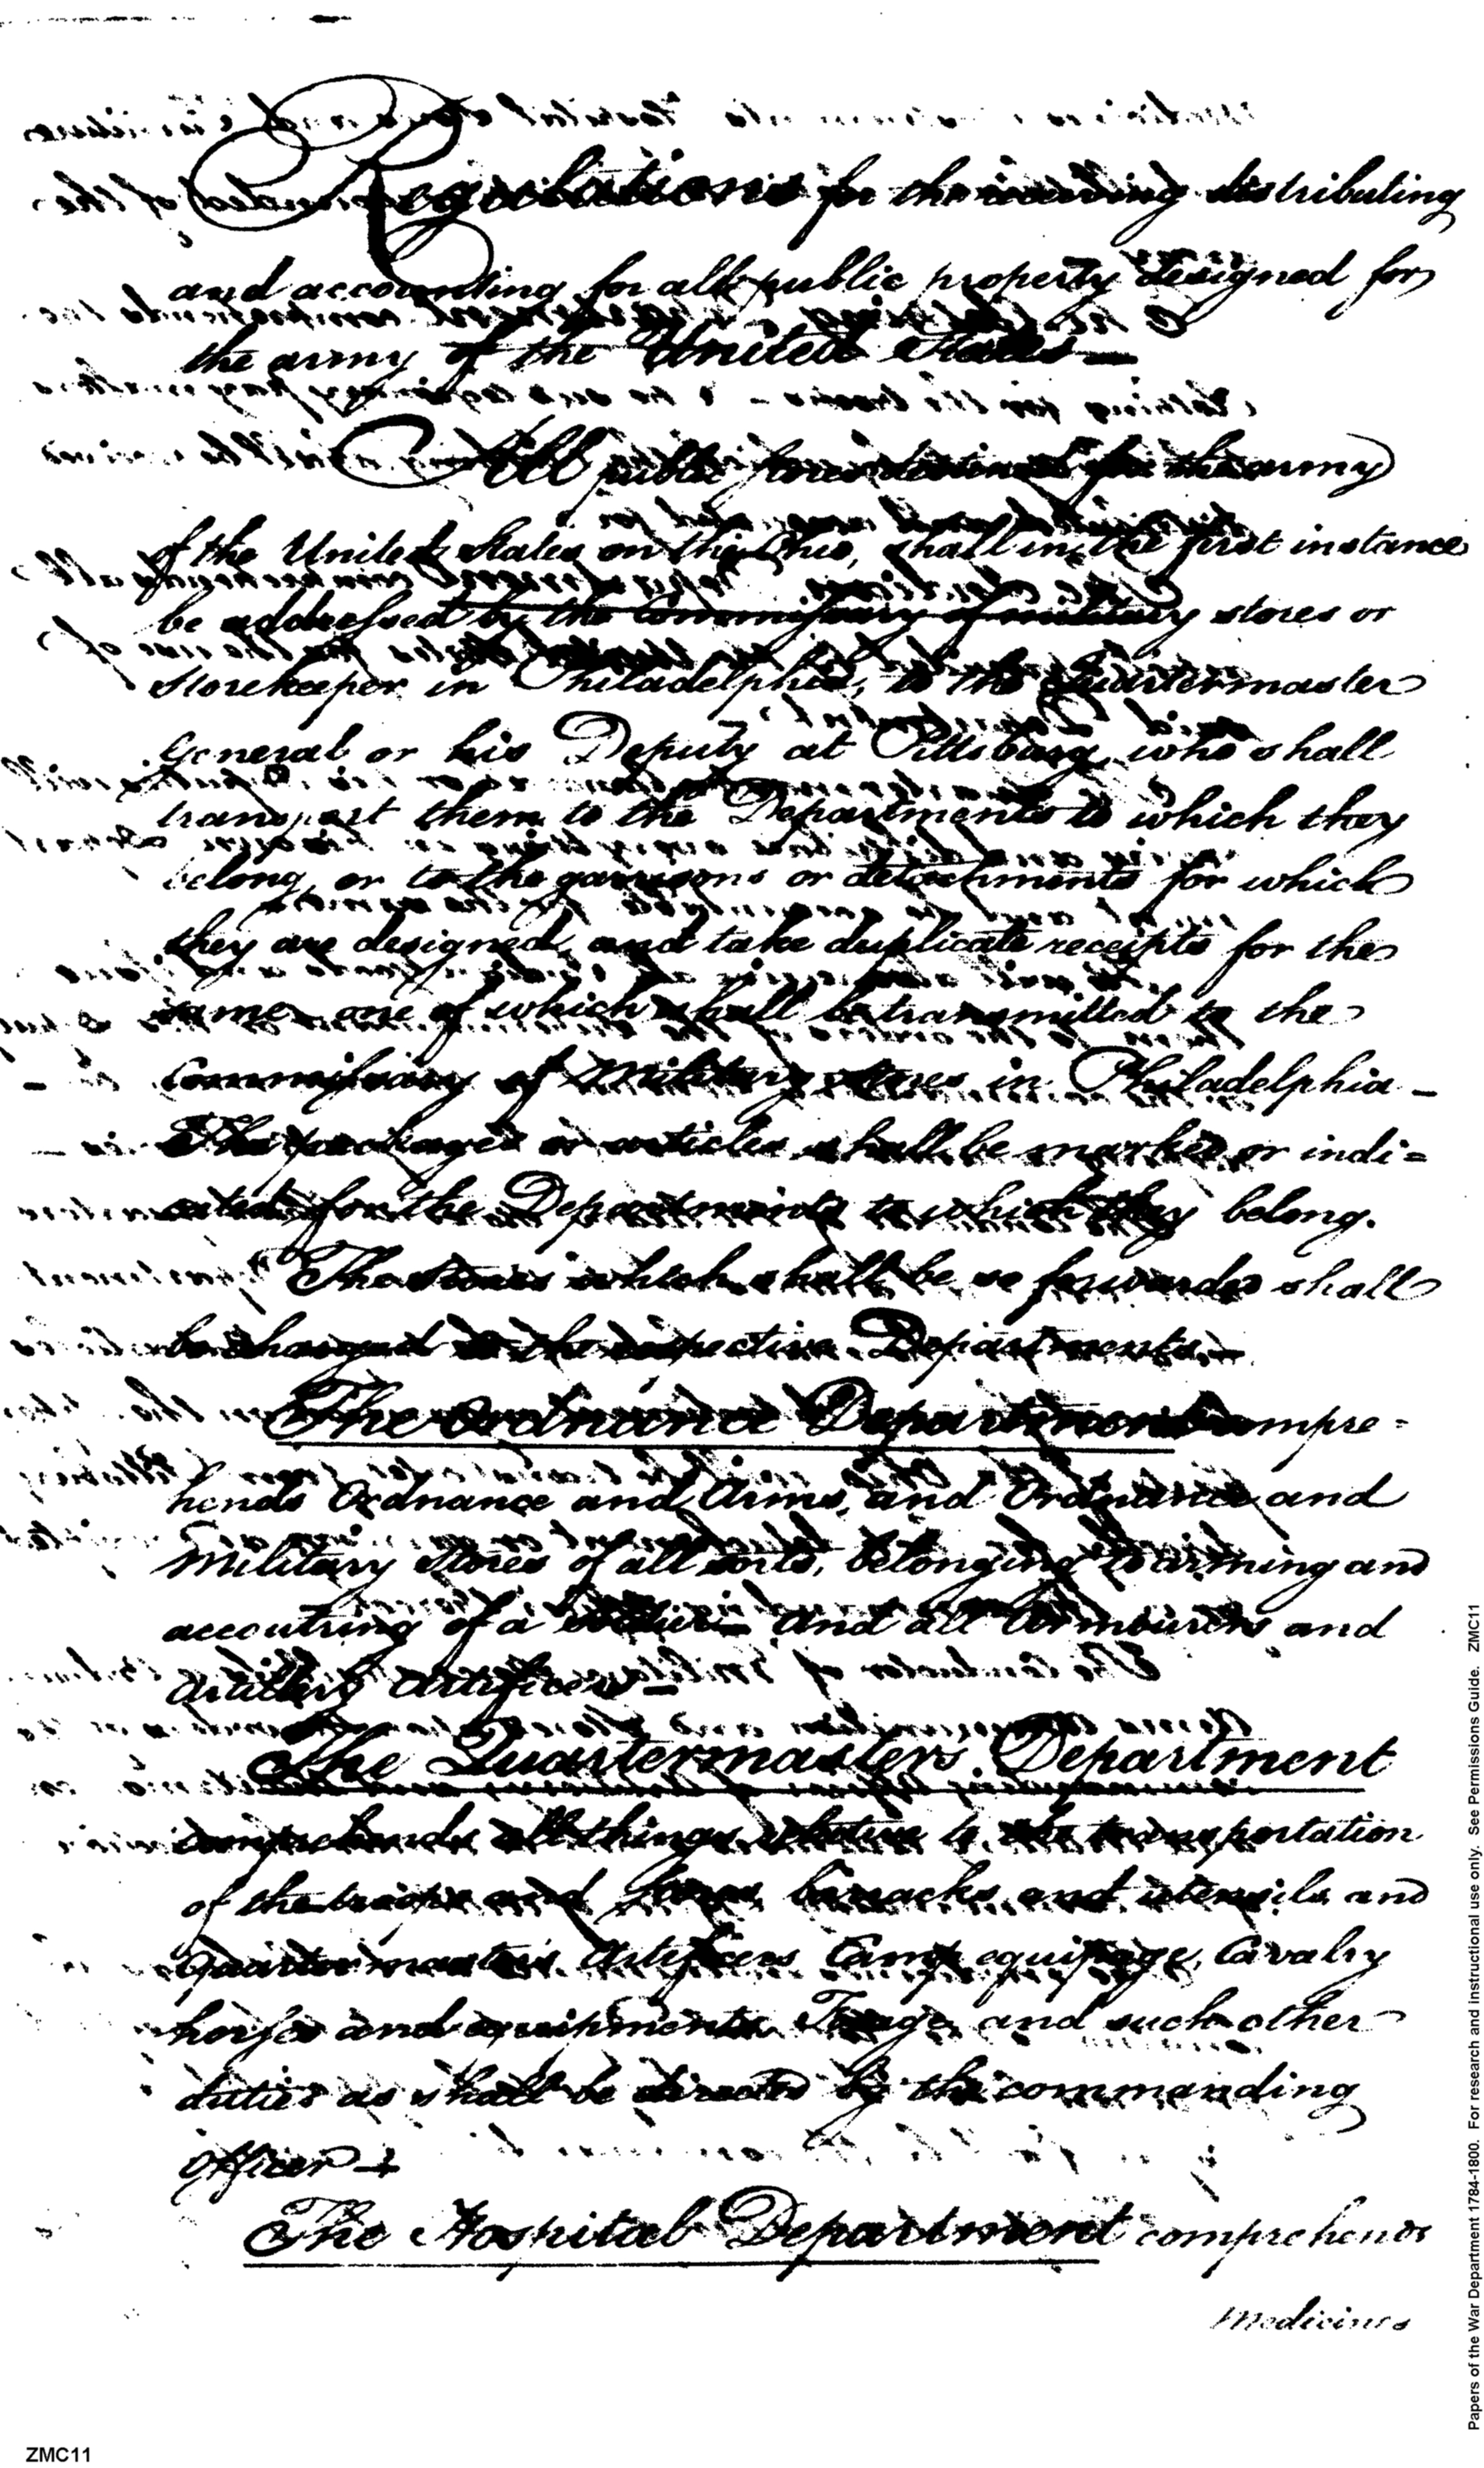 Regulations for the receiving distributing
and accounting for all public property designed for
the army of the United States —
All public stores destined for the army
of the United States on the Ohio, shall in the first instance
be addressed by the Commissary of military stores or
Storekeeper in Philadelphia, to the Quartermaster
General or his Deputy at Pittsburg, who shall
transport them to the Departments to which they
belong, or to the garrisons or detachments for which
they are designed, and take duplicate receipts for the
same one of which shall be transmitted to the
Commissary of Military stores in Philadelphia —
The packages or articles shall be marked or indi=
cated for the Departments to which they belong.
The stores which shall be so forwarded shall
be charged to the respective Departments. —
The Ordnance Department compre=
hends Ordnance and Arms, and Ordnance and
Military Stores of all sorts, belonging to arming and
accoutring of a soldier — And all Armourers and
Artillery Artificers —
The Quartermaster's Department
comprehends all things relative to the transportation
of the troops and stores, barracks, and utensils and
Quartermaster's Artificers Camp equipage, Cavalry
horses and equipments, Forage, and such other
duties as shall be directed by the commanding
officer —
The Hospital Department comprehends
Medicines
Papers of the War Department 1784-1800. For research and instructional use only. See Permissions Guide. ZMC11
ZMC11